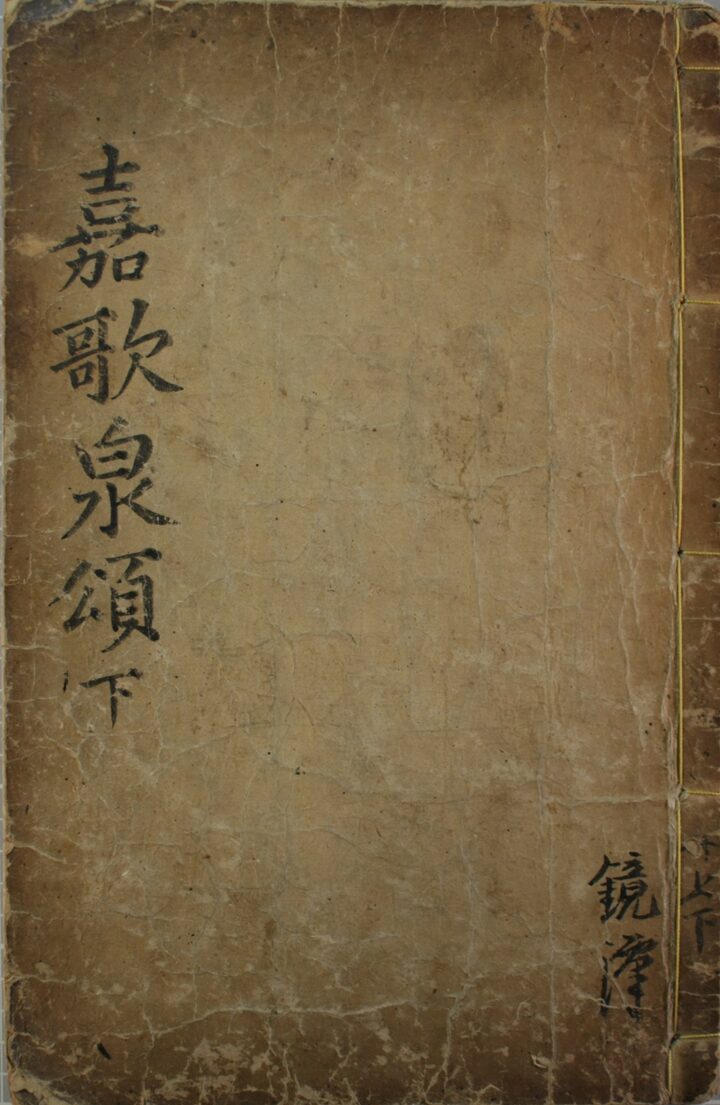 嘉歌泉頌下
鏡澤
上下